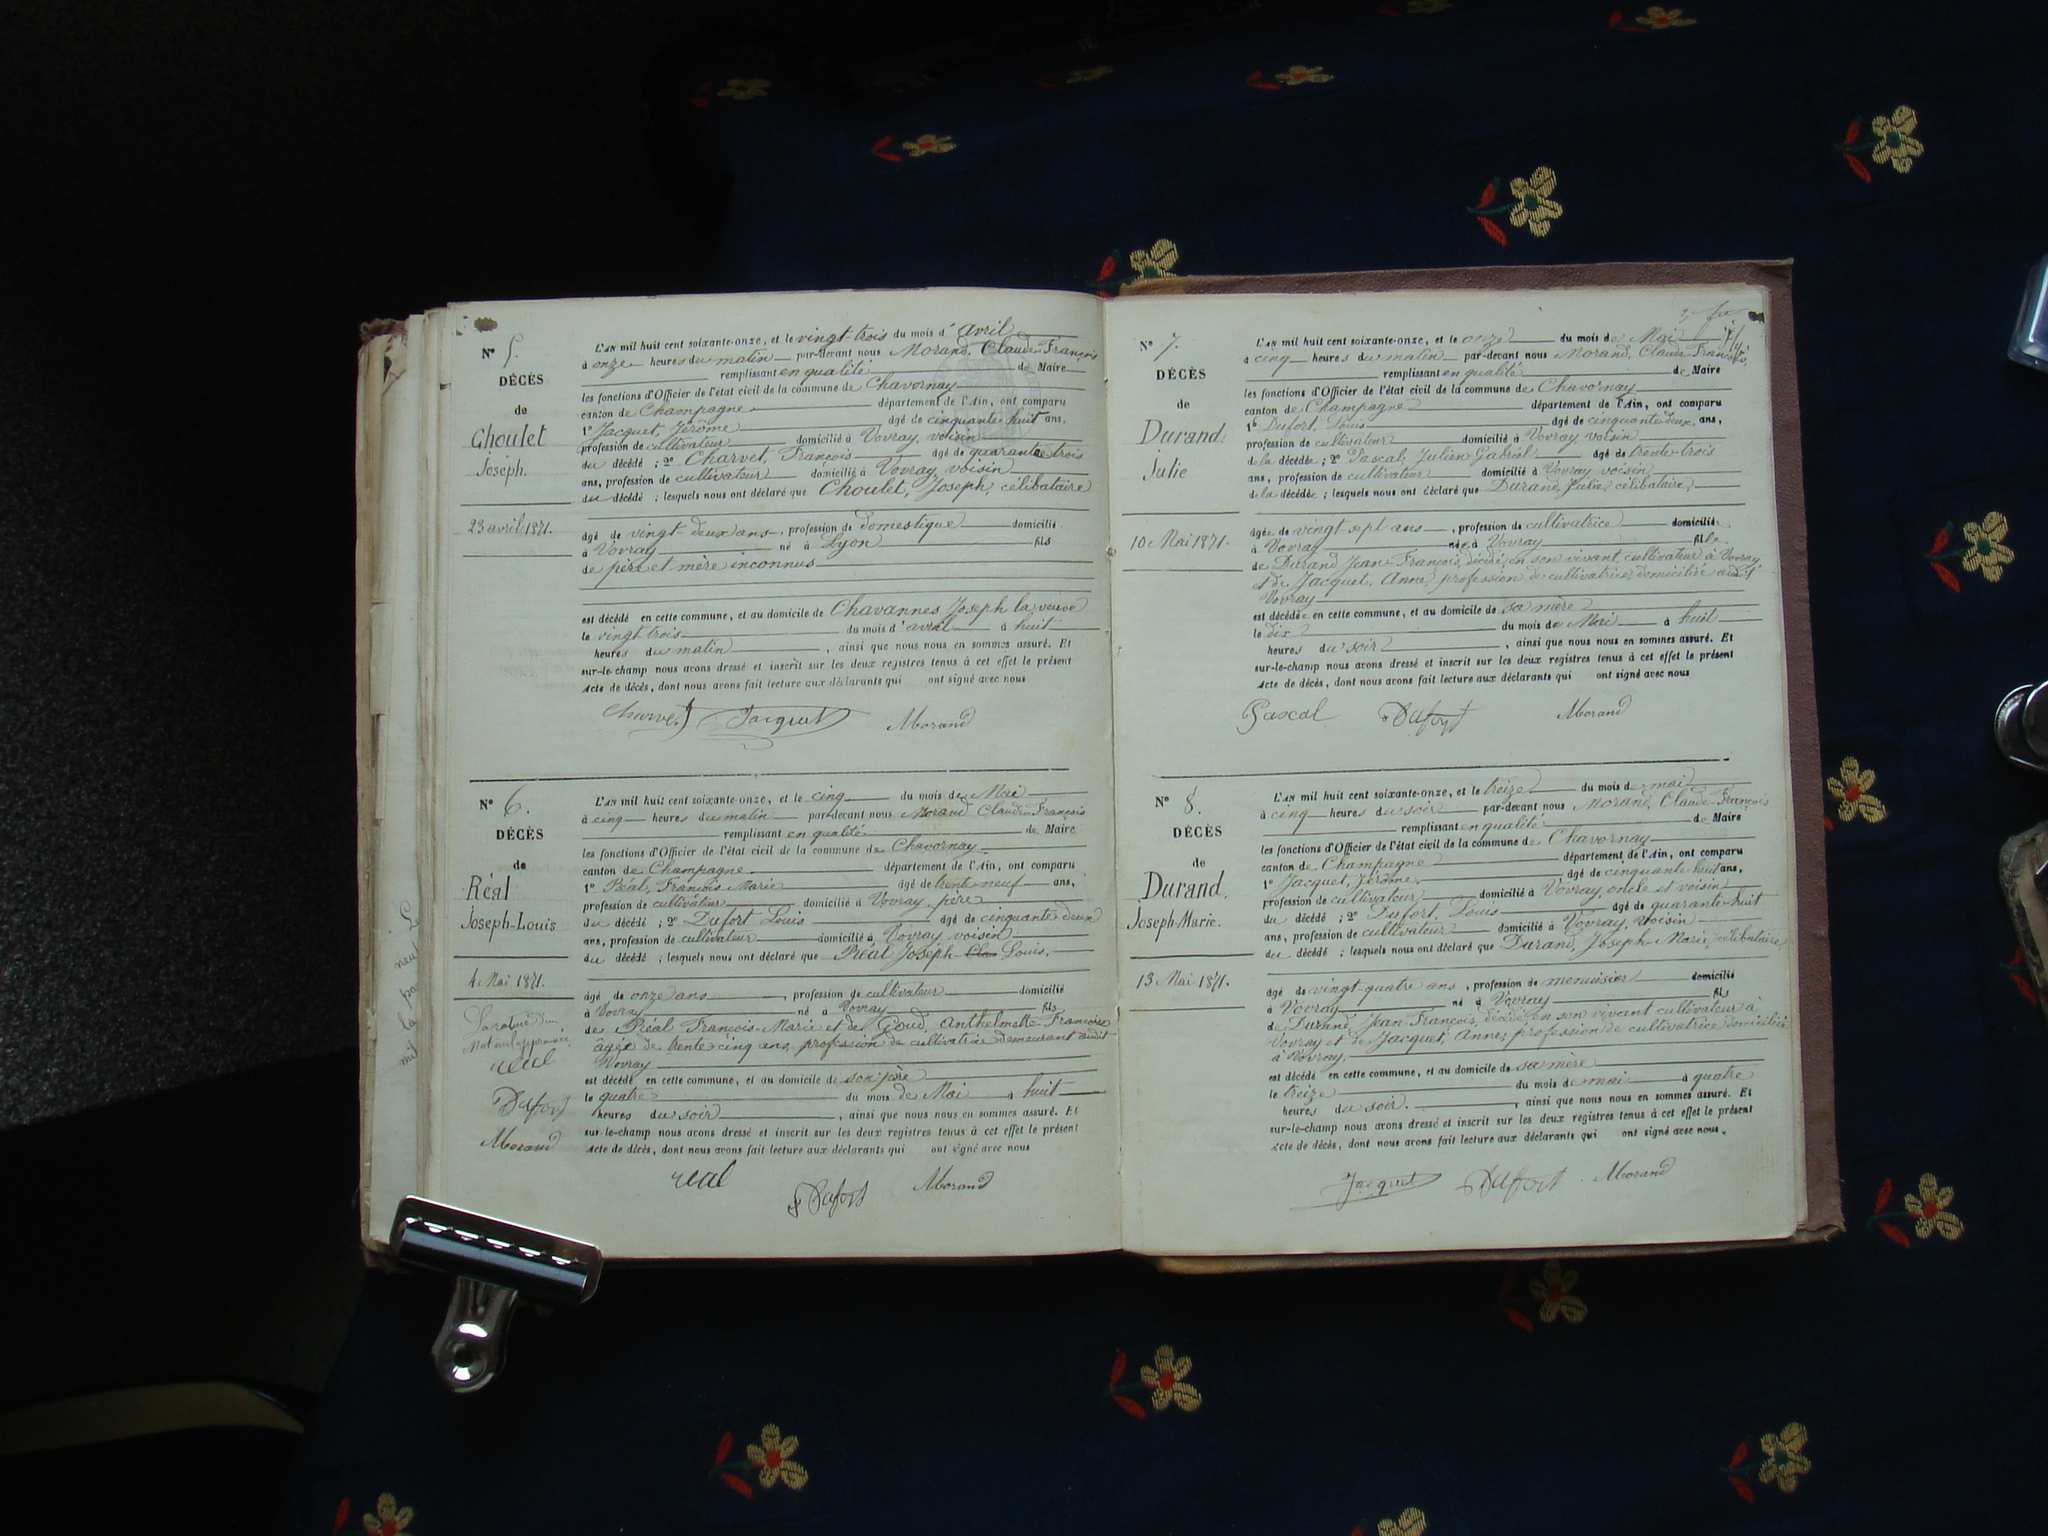 N° 5.
DÉCÈS
de
Choulet
Joseph.
23 avril 1871.
L'AN mil huit cent soixante-onze, et le vingt-trois du mois d'avril
à onze heures du matin par-devant nous Morand, Claude-François
remplissant en qualité de Maire
les fonctions d'Officier de l'état civil de la commune de Chavornay
canton de Champagne département de l'Ain, ont comparu
1° Jacquet, Jérôme âgé de cinquante-huit ans,
profession de cultivateur domicilié à Vovray, voisin
du décédé ; 2° Charvet, François âgé de quarante-trois
ans, profession de cultivateur domicilié à Vovray, voisin
du décédé ; lesquels nous ont déclaré que Choulet, Joseph, célibataire
âgé de vingt-deux ans, profession de domestique domicilié
à Vovray né à Lyon fils
de père et mère inconnus
est décédé en cette commune, et au domicile de Chavannes Joseph la veuve
le vingt-trois du mois d'avril à huit
heures du matin, ainsi que nous nous en sommes assuré. Et
sur-le-champ nous avons dressé et inscrit sur les deux registres tenus à cet effet le présent
acte de décès, dont nous avons fait lecture aux déclarants qui ont signé avec nous
Charvet Jacquet Morand
N° 6.
DÉCÈS
de
Réal
Joseph-Louis
4 Mai 1871.
réal
Dufort
Morand
L'AN mil huit cent soixante-onze, et le cinq du mois de Mai
à cinq heures du matin par-devant nous Morand Claude-François
remplissant en qualité de Maire
les fonctions d'Officier de l'état civil de la commune de Chavornay
canton de Champagne département de l'Ain, ont comparu
1° Réal, François-Marie âgé de trente-neuf ans,
profession de cultivateur domicilié à Vovray, père
du décédé ; 2° Dufort Louis âgé de cinquante-deux
ans, profession de cultivateur domicilié à Vovray, voisin
du décédé ; lesquels nous ont déclaré que Réal Joseph Louis,
âgé de onze ans, profession de cultivateur domicilié
à Vovray né à Vovray fils
de Réal François-Marie et de Goud, Anthelmette-Françoise
âgée de trente-cinq ans, profession de cultivatrice demeurant audit
Vovray
est décédé en cette commune, et au domicile de son père
le quatre du mois de Mai à huit
heures du soir, ainsi que nous nous en sommes assuré. Et
sur-le-champ nous avons dressé et inscrit sur les deux registres tenus à cet effet le présent
acte de décès, dont nous avons fait lecture aux déclarants qui ont signé avec nous
real Dufort Morand
N° 7.
DÉCÈS
de
Durand
Julie
10 Mai 1871.
L'AN mil huit cent soixante-onze, et le onze du mois de Mai
à cinq heures du matin par-devant nous Morand, Claude-François,
remplissant en qualité de Maire
les fonctions d'Officier de l'état civil de la commune de Chavornay
canton de Champagne département de l'Ain, ont comparu
1° Dufort, Louis âgé de cinquante-deux ans,
profession de cultivateur domicilié à Vovray, voisin
de la décédée ; 2° Pascal, Julien Gabriel âgé de trente-trois
ans, profession de cultivateur domicilié à Vovray voisin
de la décédée ; lesquels nous ont déclaré que Durand, Julie, célibataire,
âgée de vingt-sept ans, profession de cultivatrice domiciliée
à Vovray née à Vovray fille
de Durand Jean-François, décédé, en son vivant cultivateur à Vovray
et de Jacquet, Anne, profession de cultivatrice domiciliée audit
Vovray
est décédée en cette commune, et au domicile de sa mère
le dix du mois de Mai à huit
heures du soir, ainsi que nous nous en sommes assuré. Et
sur-le-champ nous avons dressé et inscrit sur les deux registres tenus à cet effet le présent
acte de décès, dont nous avons fait lecture aux déclarants qui ont signé avec nous
Pascal Dufort Morand
N° 8.
DÉCÈS
de
Durand.
Joseph-Marie.
13 Mai 1871.
L'AN mil huit cent soixante-onze, et le treize du mois de mai
à cinq heures du soir par-devant nous Morand, Claude-François
remplissant en qualité de Maire
les fonctions d'Officier de l'état civil de la commune de Chavornay
canton de Champagne département de l'Ain, ont comparu
1° Jacquet, Jérôme. âgé de cinquante-huit ans,
profession de cultivateur domicilié à Vovray, oncle et voisin
du décédé ; 2° Dufort, Louis âgé de quarante-huit
ans, profession de cultivateur domicilié à Vovray, voisin
du décédé ; lesquels nous ont déclaré que Durand, Joseph-Marie, célibataire
âgé de vingt-quatre ans, profession de menuisier domicilié
à Vovray né à Vovray fils
de Durand, Jean-François, décédé, en son vivant cultivateur à
Vovray et de Jacquet, Anne, profession de cultivatrice domiciliée
à Vovray.
est décédé en cette commune, et au domicile de sa mère
le treize du mois de mai à quatre
heures du soir, ainsi que nous nous en sommes assuré. Et
sur-le-champ nous avons dressé et inscrit sur les deux registres tenus à cet effet le présent
acte de décès, dont nous avons fait lecture aux déclarants qui ont signé avec nous.
Jacquet Dufort Morand